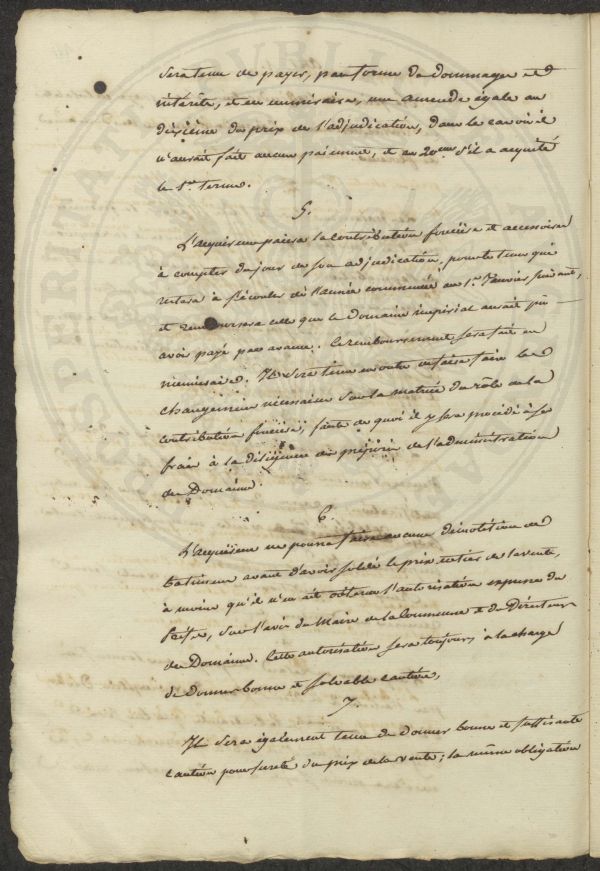 sera tenu de payer, par forme de dommages et
intérêts, et en numéraire, une amende égale au
dixième du prix de l'adjudication, dans le cas où il
n'aurait fait aucun paiement, et au 20eme s'il a acquitté
le 1er terme.
5.
L'acquéreur paiera la contribution foncière et accessoires
à compter du jour de son adjudication, pour le tems qui
restera à s'écouler de l'année commencée au 1er Janvier, suivant,
et remboursera celle que le Domaine impérial aurait pû
avoir payé par avance. Ce remboursement sera fait en
numéraire. Il sera tenu en outre de faire faire les
changemens nécessaires sur la matrice du rôle de la
contribution foncière, faute de quoi il y sera procédé à ses
frais à la diligence des préposés de l'administration
des Domaines.
6.
L'acquéreur ne pourra faire aucune démolition de
batimens avant d'avoir soldé le prix entier de la vente,
à moins qu'il n'en ait obtenu l'autorisation expresse du
Préfet, sur l'avis du Maire de la Commune et du Directeur
des Domaines. Cette autorisation sera toujours à la charge
de donner bonne et solvable caution.
7.
Il sera également tenu de donner bonne et suffisante
caution pour sureté du prix de la vente; la même obligation